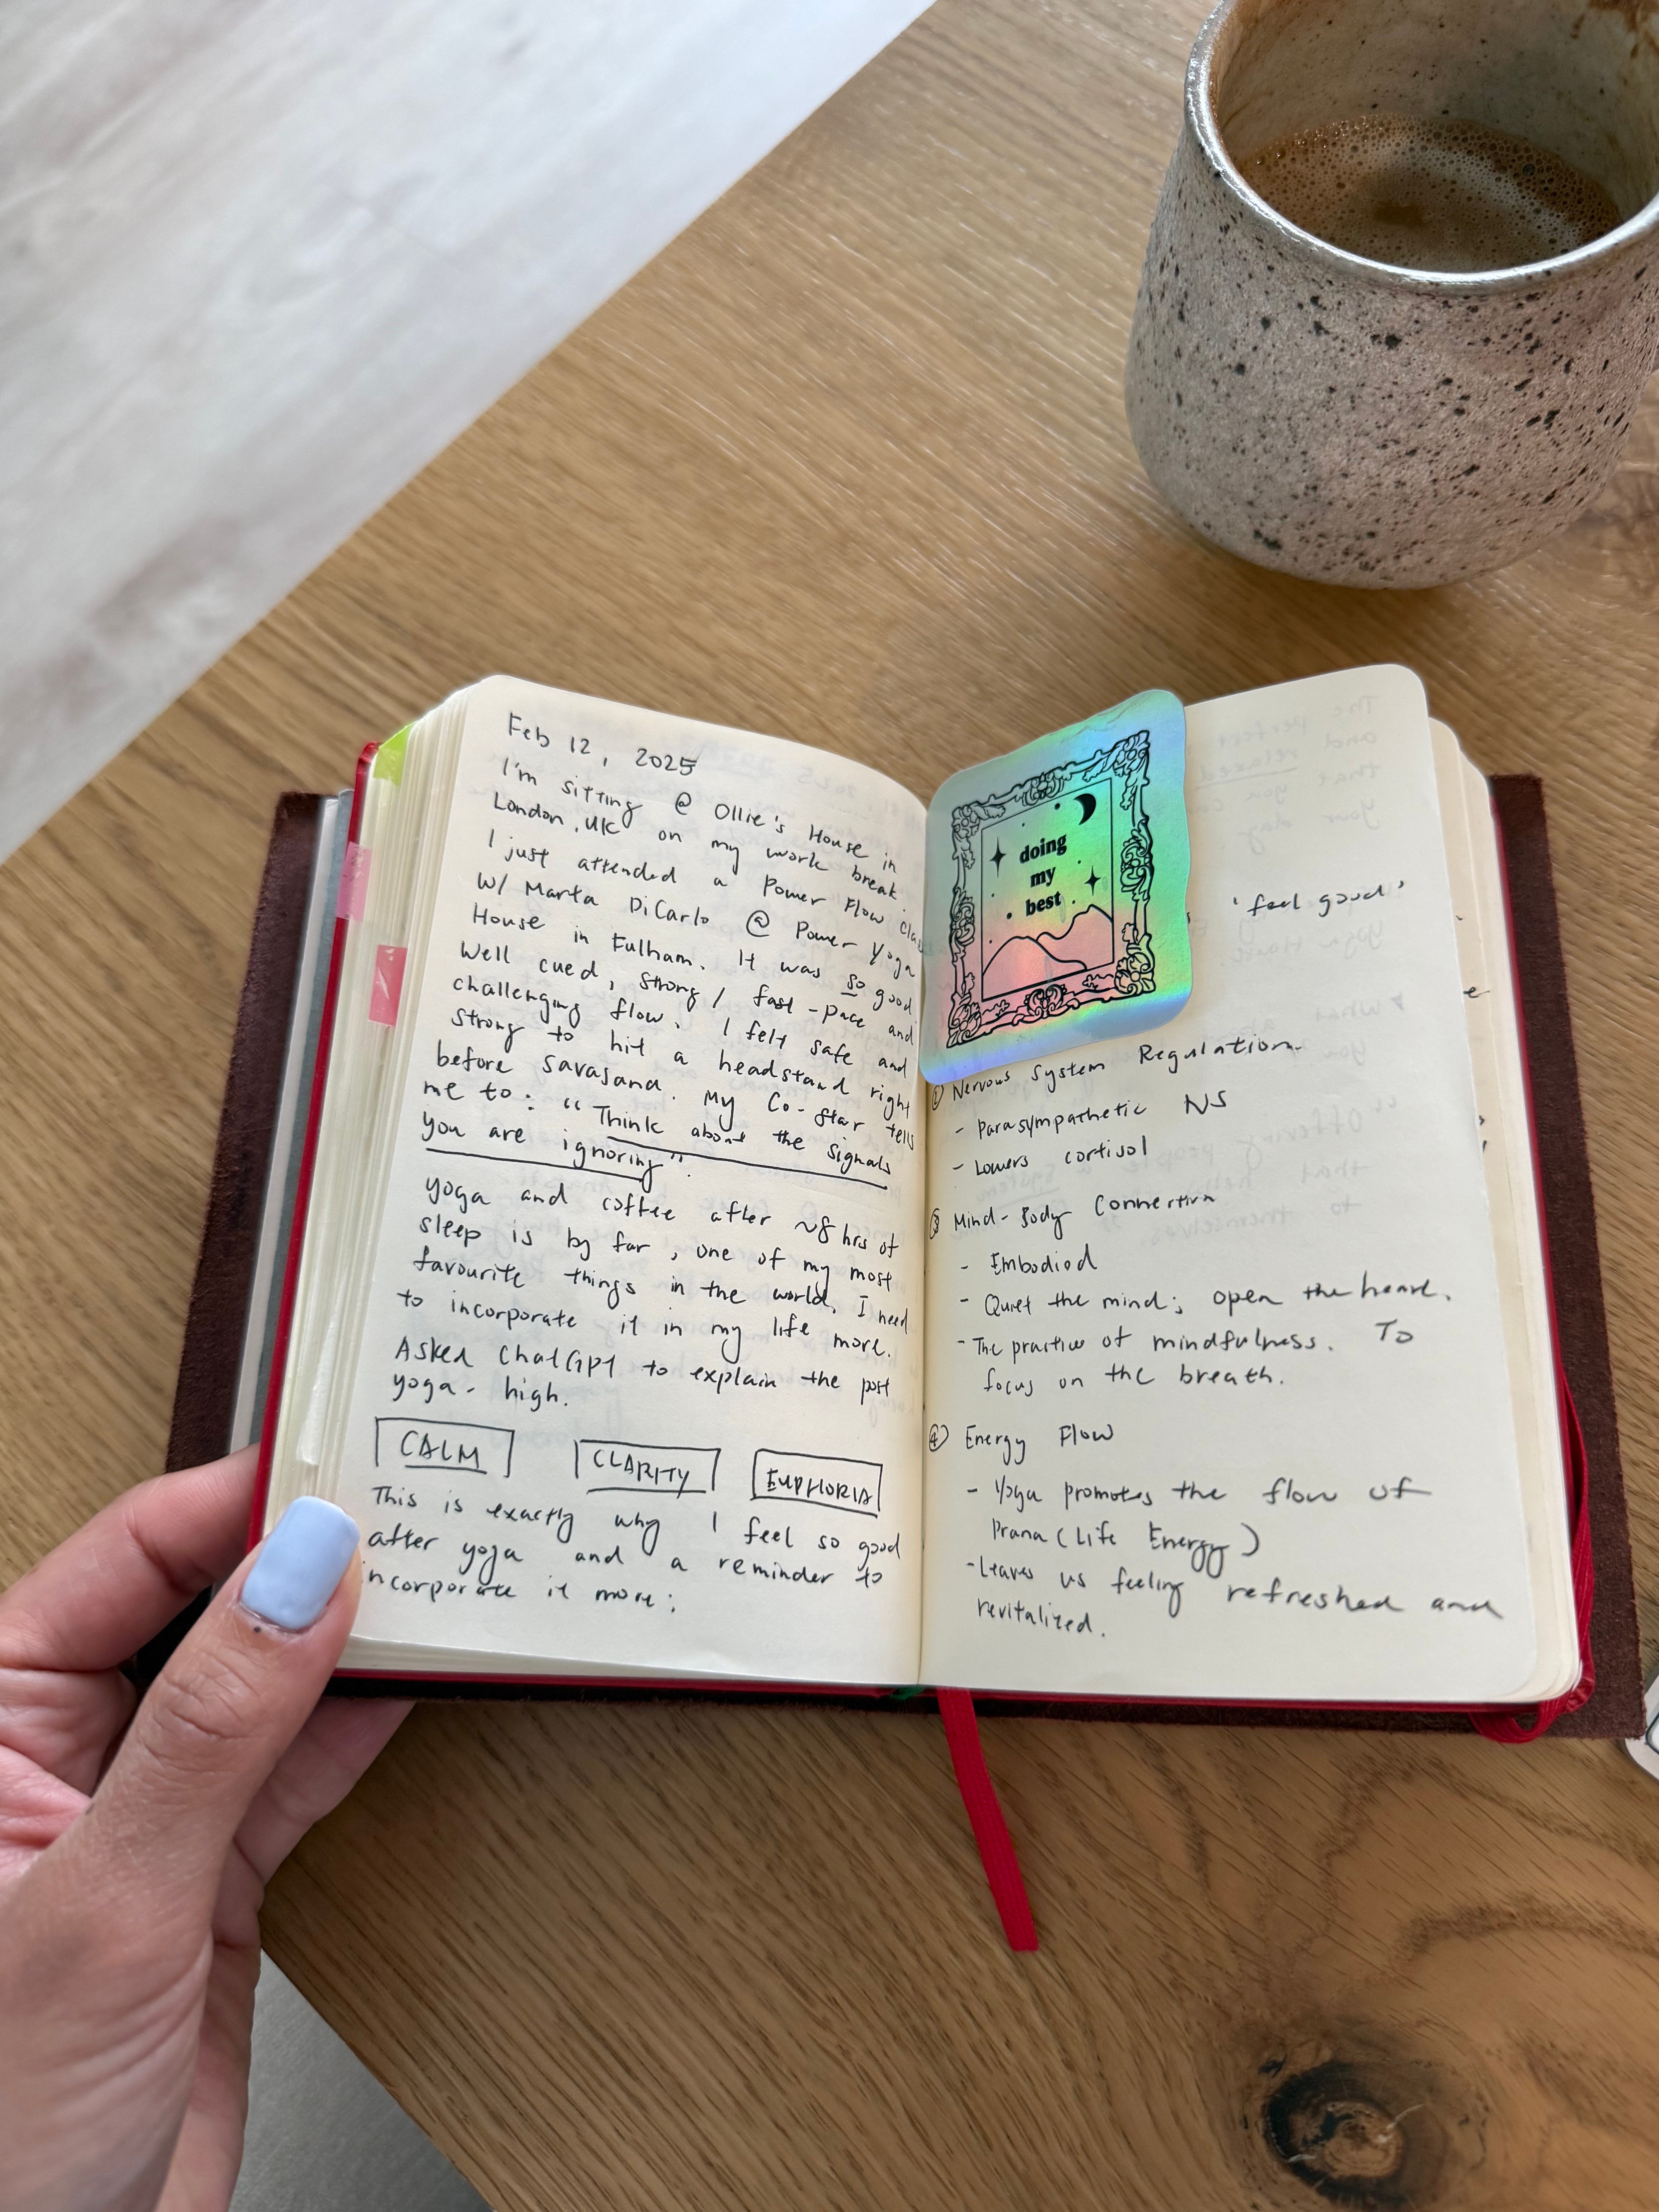 Feb 12, 2025
I'm sitting @ Ollie's House in
London, UK on my work break.
I just attended a Power Flow class
W/ Marta DiCarlo @ Power Yoga
House in Fulham. It was so good.
Well cued, strong / fast-pace and
challenging flow. I felt safe and
strong to hit a headstand right
before savasana. My Co-Star tells
me to: "Think about the signals
you are ignoring".
Yoga and coffee after ~8 hrs of
sleep is by far, one of my most
favourite things in the world. I need
to incorporate it in my life more.
Asked ChatGPT to explain the post
yoga-high.
CALM CLARITY EUPHORIA
This is exactly why I feel so good
after yoga and a reminder to
incorporate it more:
doing
my
best
'feel good'
Nervous System Regulation.
- Parasympathetic NS
- Lowers cortisol
③ Mind-Body Connection
- Embodied
- Quiet the mind; open the heart.
- The practice of mindfulness. To
focus on the breath.
④ Energy Flow
- Yoga promotes the flow of
Prana (Life Energy)
- Leaves us feeling refreshed and
revitalized.